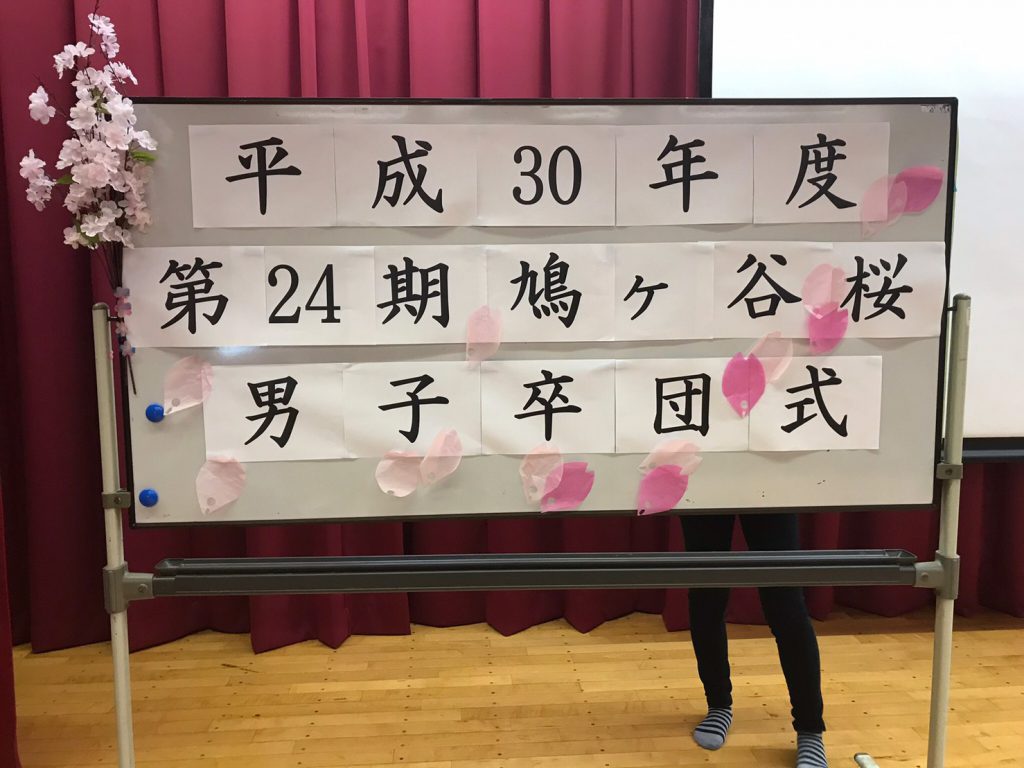 平成30年度
第24期鳩ヶ谷桜
男子卒団式